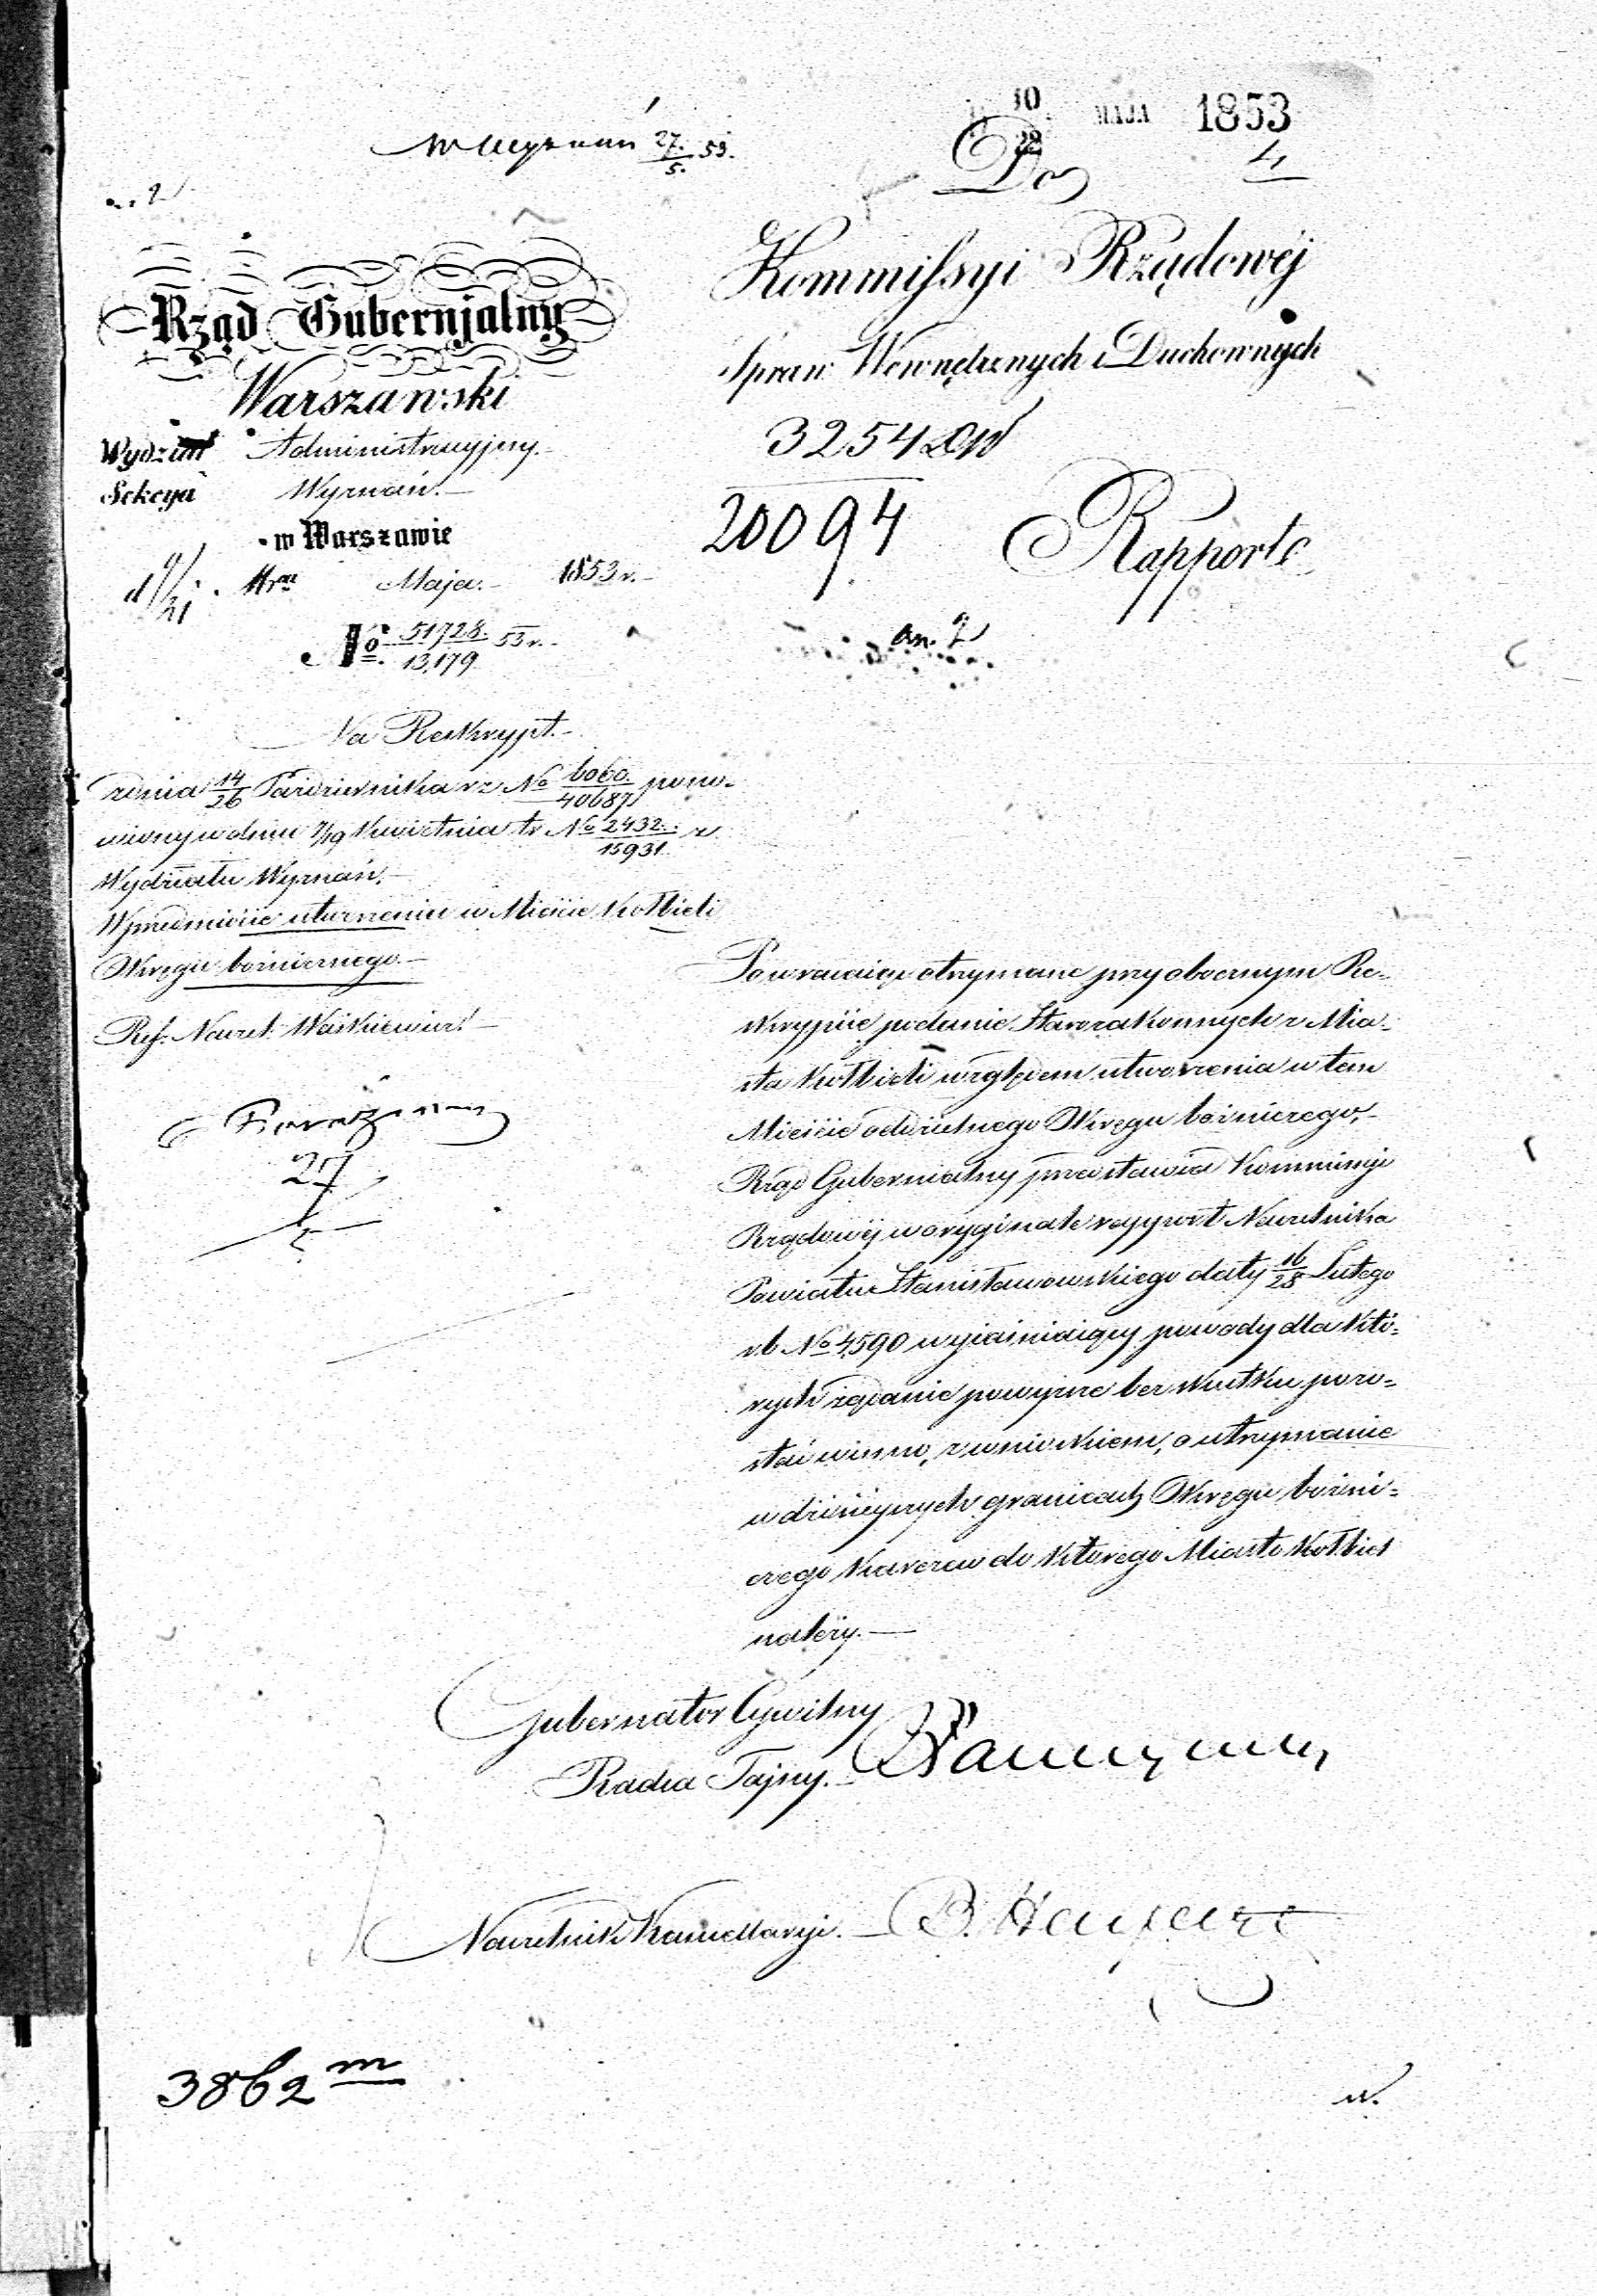 10
22 MAJA 1853
W Wyznań 27./5. 53.
Do
an. 2
Kommissyi Rządowéj
Spraw Wewnętrznych i Duchownych
3254
20094
Rapport
an. 2
Rząd Gubernjalny
Warszawski
Wydział Administracyjny.
Sekcya Wyznań.
w Warszawie
d 9/21 Maja. 1853 r.
No 51728./13,179 53 r.
Na Reskrypt.
z dnia 14/26 Października r z No 6060./40687 pono-
wiony w dniu 7/19 Kwietnia tr No 2432./15931 z
Wydziału Wyznań.
W przedmiocie utworzenia w Mieście Kołbieli
Okręgu bożnicznego.
Ref. Naczel. Waśkiewicz
27
Powracając otrzymane przy obocznym Re-
skrypcie podanie Starozakonnych z Mia-
sta Kołbieli względem utworzenia w tem
Mieście oddzielnego Okręgu bożniczego,
Rząd Gubernialny przedstawia Kommissyi
Rządowéj w oryginale rapport Naczelnika
Powiatu Stanisławowskiego daty 16/28 Lutego
r.b No 4590 wyjaśniaiący powody dla któ-
rych żądanie powyższe bez skutku pozo-
stać winno, z wnioskiem, o utrzymanie
w dzisiejszych granicach Okręgu bożni-
czego Karczew do którego Miasto Kołbiel
należy.
Gubernator Cywilny
Radca Tajny.
Naczelnik Kancellaryi.
3862 m